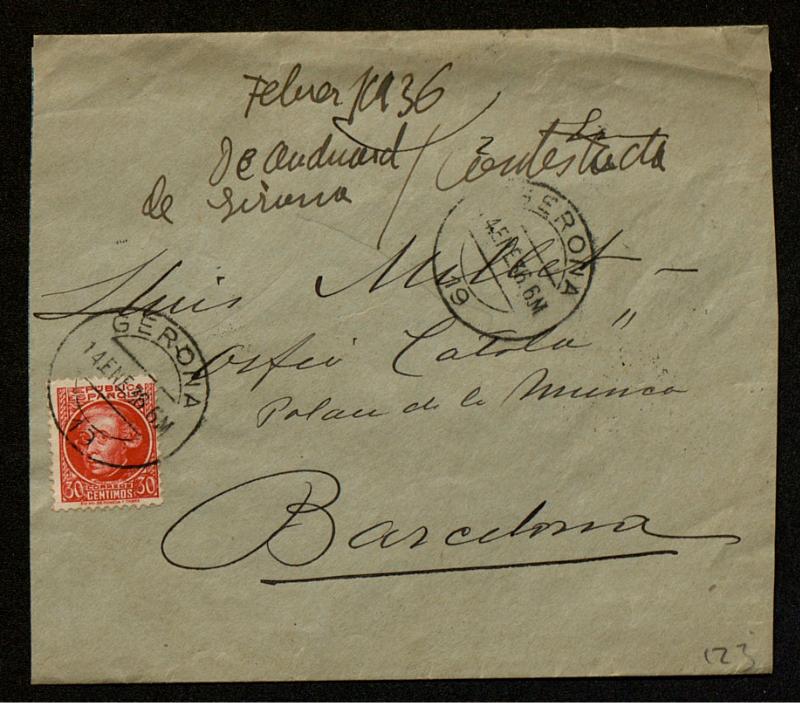 Febrer 1936
De
de Girona
Contestada
GERONA
14 ENE 36. 6M
19
Lluis Millet -
Orfeó Català"
Palau de la Musica
GERONA
14 ENE 36. 6M
REPÚBLICA
ESPAÑOLA
CORREOS
30 CENTIMOS 30
Barcelona
123